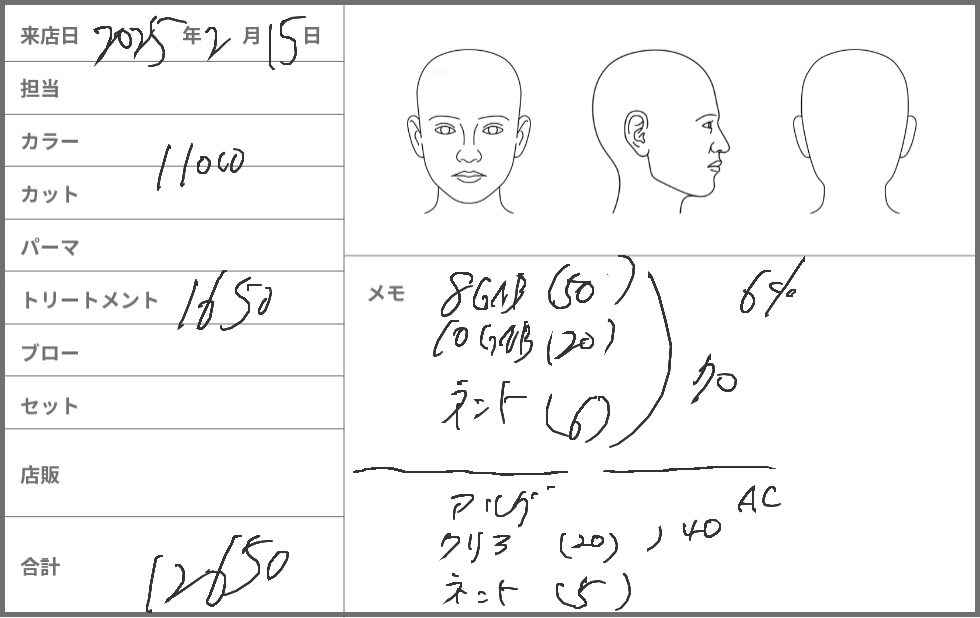 来店日 2025年2月15日
担当
カラー
11000
カット
パーマ
トリートメント 1650
ブロー
セット
店販
合計 12650
メモ
8GNB (50)
10GNB (20)
6%
カロ
(6)
AC
クリア (20) 40
(5)